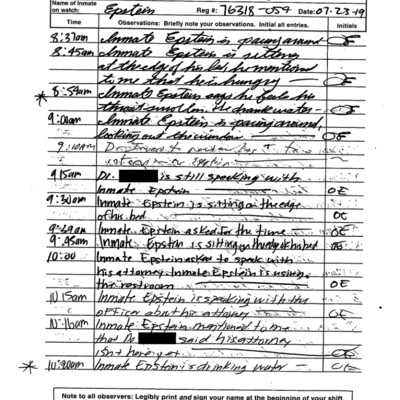 Name of Inmate
on watch: Epstein Reg #: 76318-054 Date: 07-23-19
Time Observations: Briefly note your observations. Initial all entries. Initials
8:37am Inmate Epstein is pacing around OE
8:45am Inmate Epstein is sitting
at the edge of his bed he mentioned
to me that he is hungry OE
* 8:59am Inmate Epstein says he feels his
throat swollen. drank water OE
9:00am Inmate Epstein is pacing around,
looking out the window OE
9:10am
Epstein
9:15am Dr. is still speaking with
Inmate Epstein OE
9:30am Inmate Epstein is sitting on the edge
of his bed OE
9:39am Inmate Epstein asked for the time OE
9:45am Inmate Epstein is sitting on the edge of his bed OE
10:00 Inmate Epstein asked to speak with
his attorney. Inmate Epstein is using
the restroom OE
10:15am Inmate Epstein is speaking with the
officer about his attorney OE
10:16am Inmate Epstein mentioned to me
that Dr. said his attorney
isn't here yet OE
* 10:20am Inmate Epstein is drinking water OE
Note to all observers: Legibly print and sign your name at the beginning of your shift.